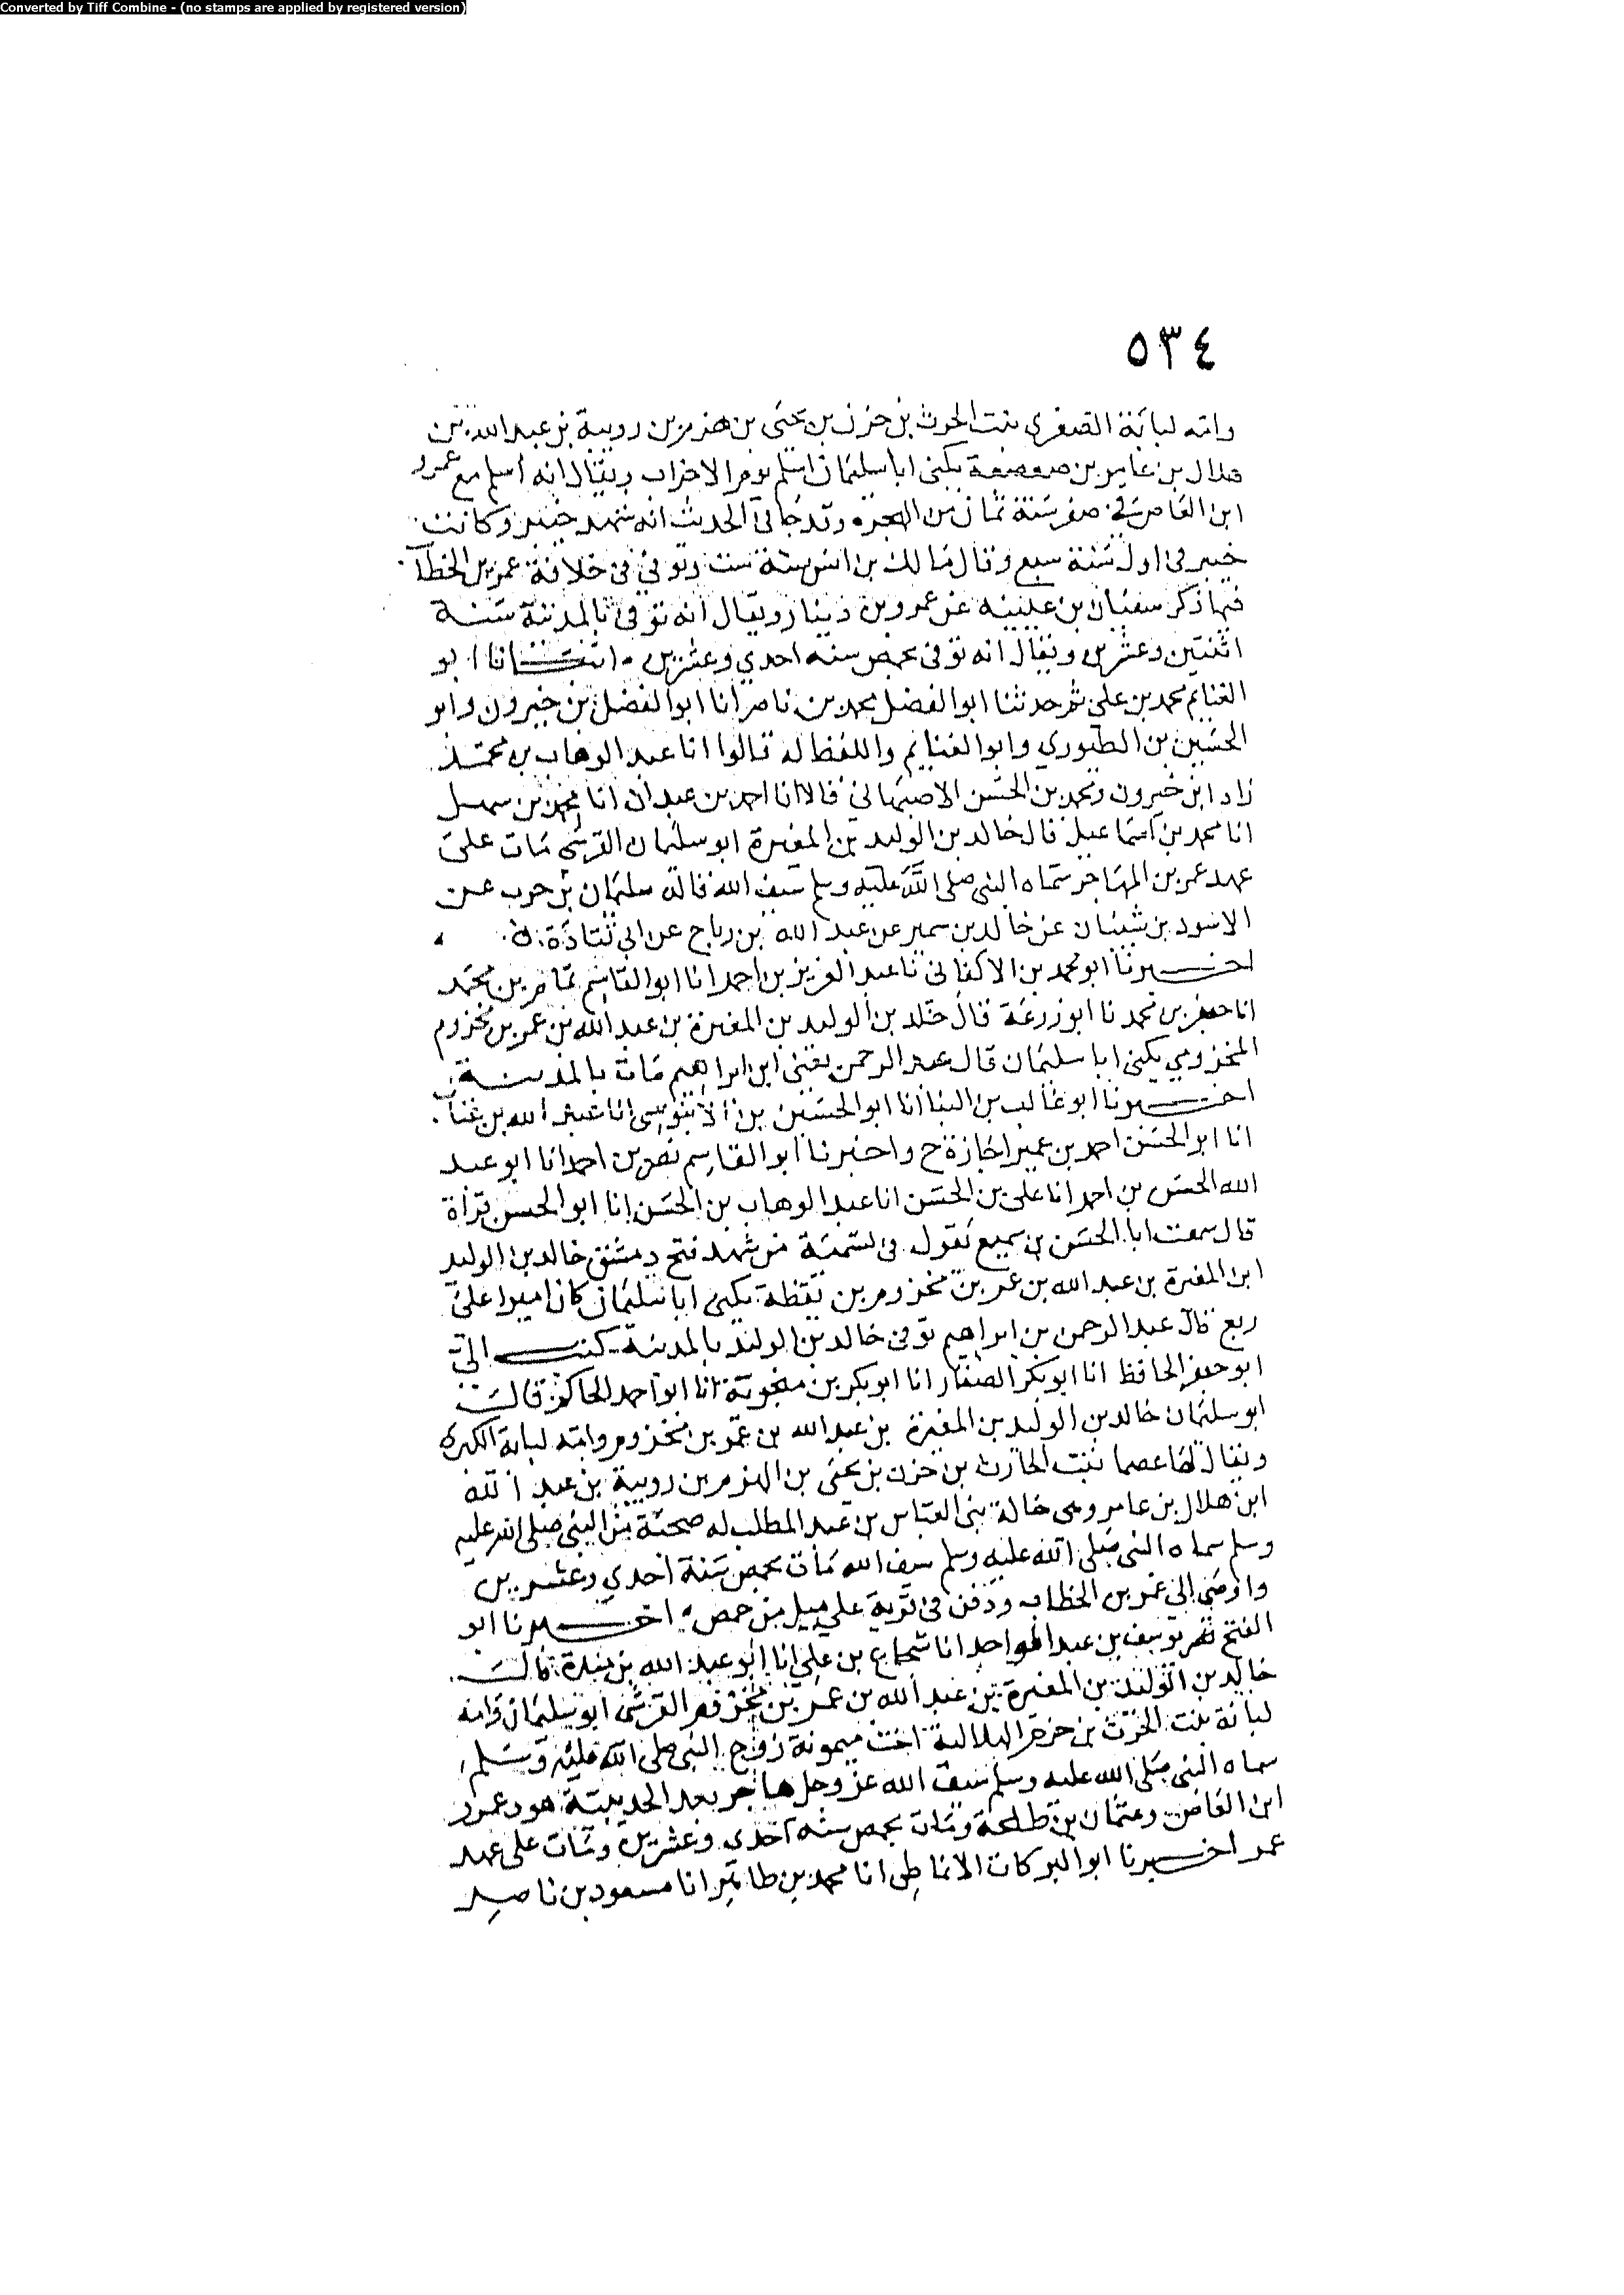 Converted by Tiff Combine - (no stamps are applied by registered version)
٥٣٤
وامه لبابة الصغرى بنت الحرث بن حزن بن بحنى بن هزم بن رويبة بن عبد الله بن
هلال بن عامر بن صعصعة يكنى ابا سليمان اسلم يوم الاحزاب ويقال انه اسلم مع عمرو
ابن العاص في صفر سنة ثمان من الهجرة وقد جا فى الحديث انه شهد خيبر وكانت
خيبر فى اول سنة سبع وقال مالك بن انس سنة ست وتوفي فى خلافة عمر بن الخطاب
فيما ذكر سفيان بن عيينه عن عمرو بن دينار ويقال انه توفى بالمدينة سنة
اثنتين وعشرين ويقال انه توفى بحمص سنه احدي وعشرين انبانا ابو
الغنايم محمد بن على ثم حدثنا ابو الفضل محمد بن ناصر انا ابو الفضل بن خيرون وابو
الحسين بن الطيوري وابو الغنايم واللفظ له قالوا انا عبد الوهاب بن محمد
زاد ابن خيرون ومحمد بن الحسن الاصبهانى قالا انا احمد بن عبدان انا محمد بن سهل
انا محمد بن اسماعيل قال خالد بن الوليد بن المغيرة ابو سليمان القرشى مات على
عهد عمر بن المهاجر سماه النبى صلى الله عليه وسلم سيف الله قاله سليمان بن حرب عن
الاسود بن شيبان عن خالد بن سمير عن عبد الله بن رباح عن ابى قتادة
اخبرنا ابو محمد بن الاكفانى نا عبد العزيز بن احمد انا ابو القاسم تمام بن محمد
انا جعفر بن محمد نا ابو زرعة قال خلد بن الوليد بن المغيرة بن عبد الله بن عمر بن مخزوم
المخزومي يكنى ابا سليمان قال عبد الرحمن يعنى ابن ابراهيم مات بالمدينة
اخبرنا ابو غالب بن البنا انا ابو الحسين بن الابنوسى انا عبد الله بن عتاب
انا ابو الحسن احمد بن عمير اجازة ح واخبرنا ابو القاسم نصر بن احمد انا ابو عبد
الله الحسن بن احمد انا على بن الحسن انا عبد الوهاب بن الحسن انا ابو الحسن قراة
قال سمعت ابا الحسن بن سميع يقول فى تسمية من شهد فتح دمشق خالد بن الوليد
ابن المغيرة بن عبد الله بن عمر بن مخزوم بن يقظة يكنى ابا سليمان كان اميرا على
ربع قال عبد الرحمن بن ابراهيم توفى خالد بن الوليد بالمدينة كتب الى
ابو جعفر الحافظ انا ابو بكر الصفار انا ابو بكر بن منجويه انا ابو احمد الحاكم قال
ابو سليمان خالد بن الوليد بن المغيرة بن عبد الله بن عمر بن مخزوم وامه لبابة الكبرى
ويقال لها عصما بنت الحارث بن حزن بن بحنى بن الهزم بن رويبة بن عبد الله
ابن هلال بن عامر وهى خالة بنى العباس بن عبد المطلب له صحبة من النبى صلى الله عليه
وسلم سماه النبى صلى الله عليه وسلم سيف الله مات بحمص سنة احدي وعشرين
واوصى الى عمر بن الخطاب ودفن فى قرية على ميل من حمص اخبرنا ابو
الفتح نصر يوسف بن عبد الواحد انا شجاع بن على انا ابو عبد الله بن مندة قال
خالد بن الوليد بن المغيرة بن عبد الله بن عمر بن مخزوم القرشى ابو سليمان وامه
لبابة بنت الحرث بن حزم الهلالية اخت ميمونة زوج النبى صلى الله عليه وسلم
سماه النبى صلى الله عليه وسلم سيف الله عز وجل هاجر بعد الحديبية هو وعمرو
ابن العاص وعثمان بن طلحة ومات بحمص سنه احدى وعشرين ومات على عهد
عمر اخبرنا ابو البركات الانماطى انا محمد بن طاهر انا مسعود بن ناصر